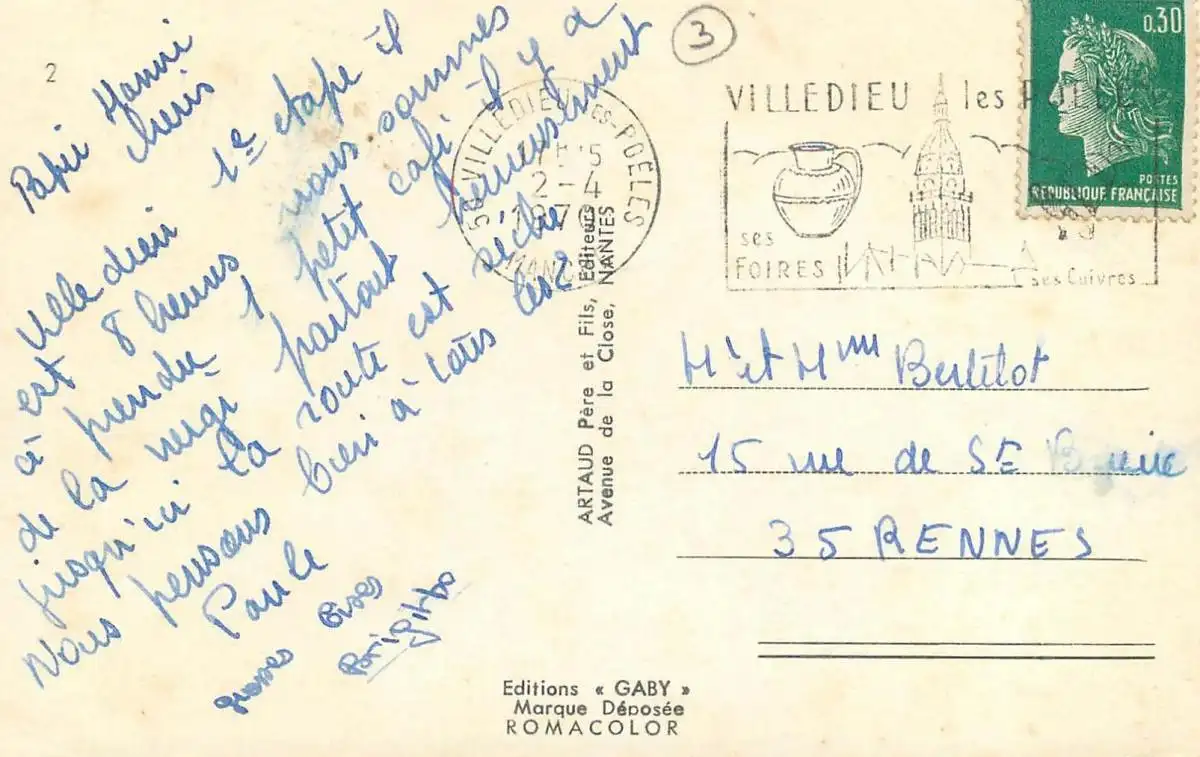 2
3
Papi Mami
cheris
Villedieu 1e etape il
est 8 heures nous sommes
à prendre 1 petit café il y a
de la neige partout heureusement
jusqu'ici la route est sèche
Nous pensons bien à vous les 2
Paule
grosses bises
Brigitte
50 VILLEDIEU-LES-POÊLES
2-4
1970
MANCHE
VILLEDIEU les POELES
ses
FOIRES
ses Cuivres
0,30
POSTES
RÉPUBLIQUE FRANÇAISE
ARTAUD Père et Fils, Éditeurs
Avenue de la Close, NANTES
M. et Mme
15 rue de St
35 RENNES
Editions « GABY »
Marque Déposée
ROMACOLOR